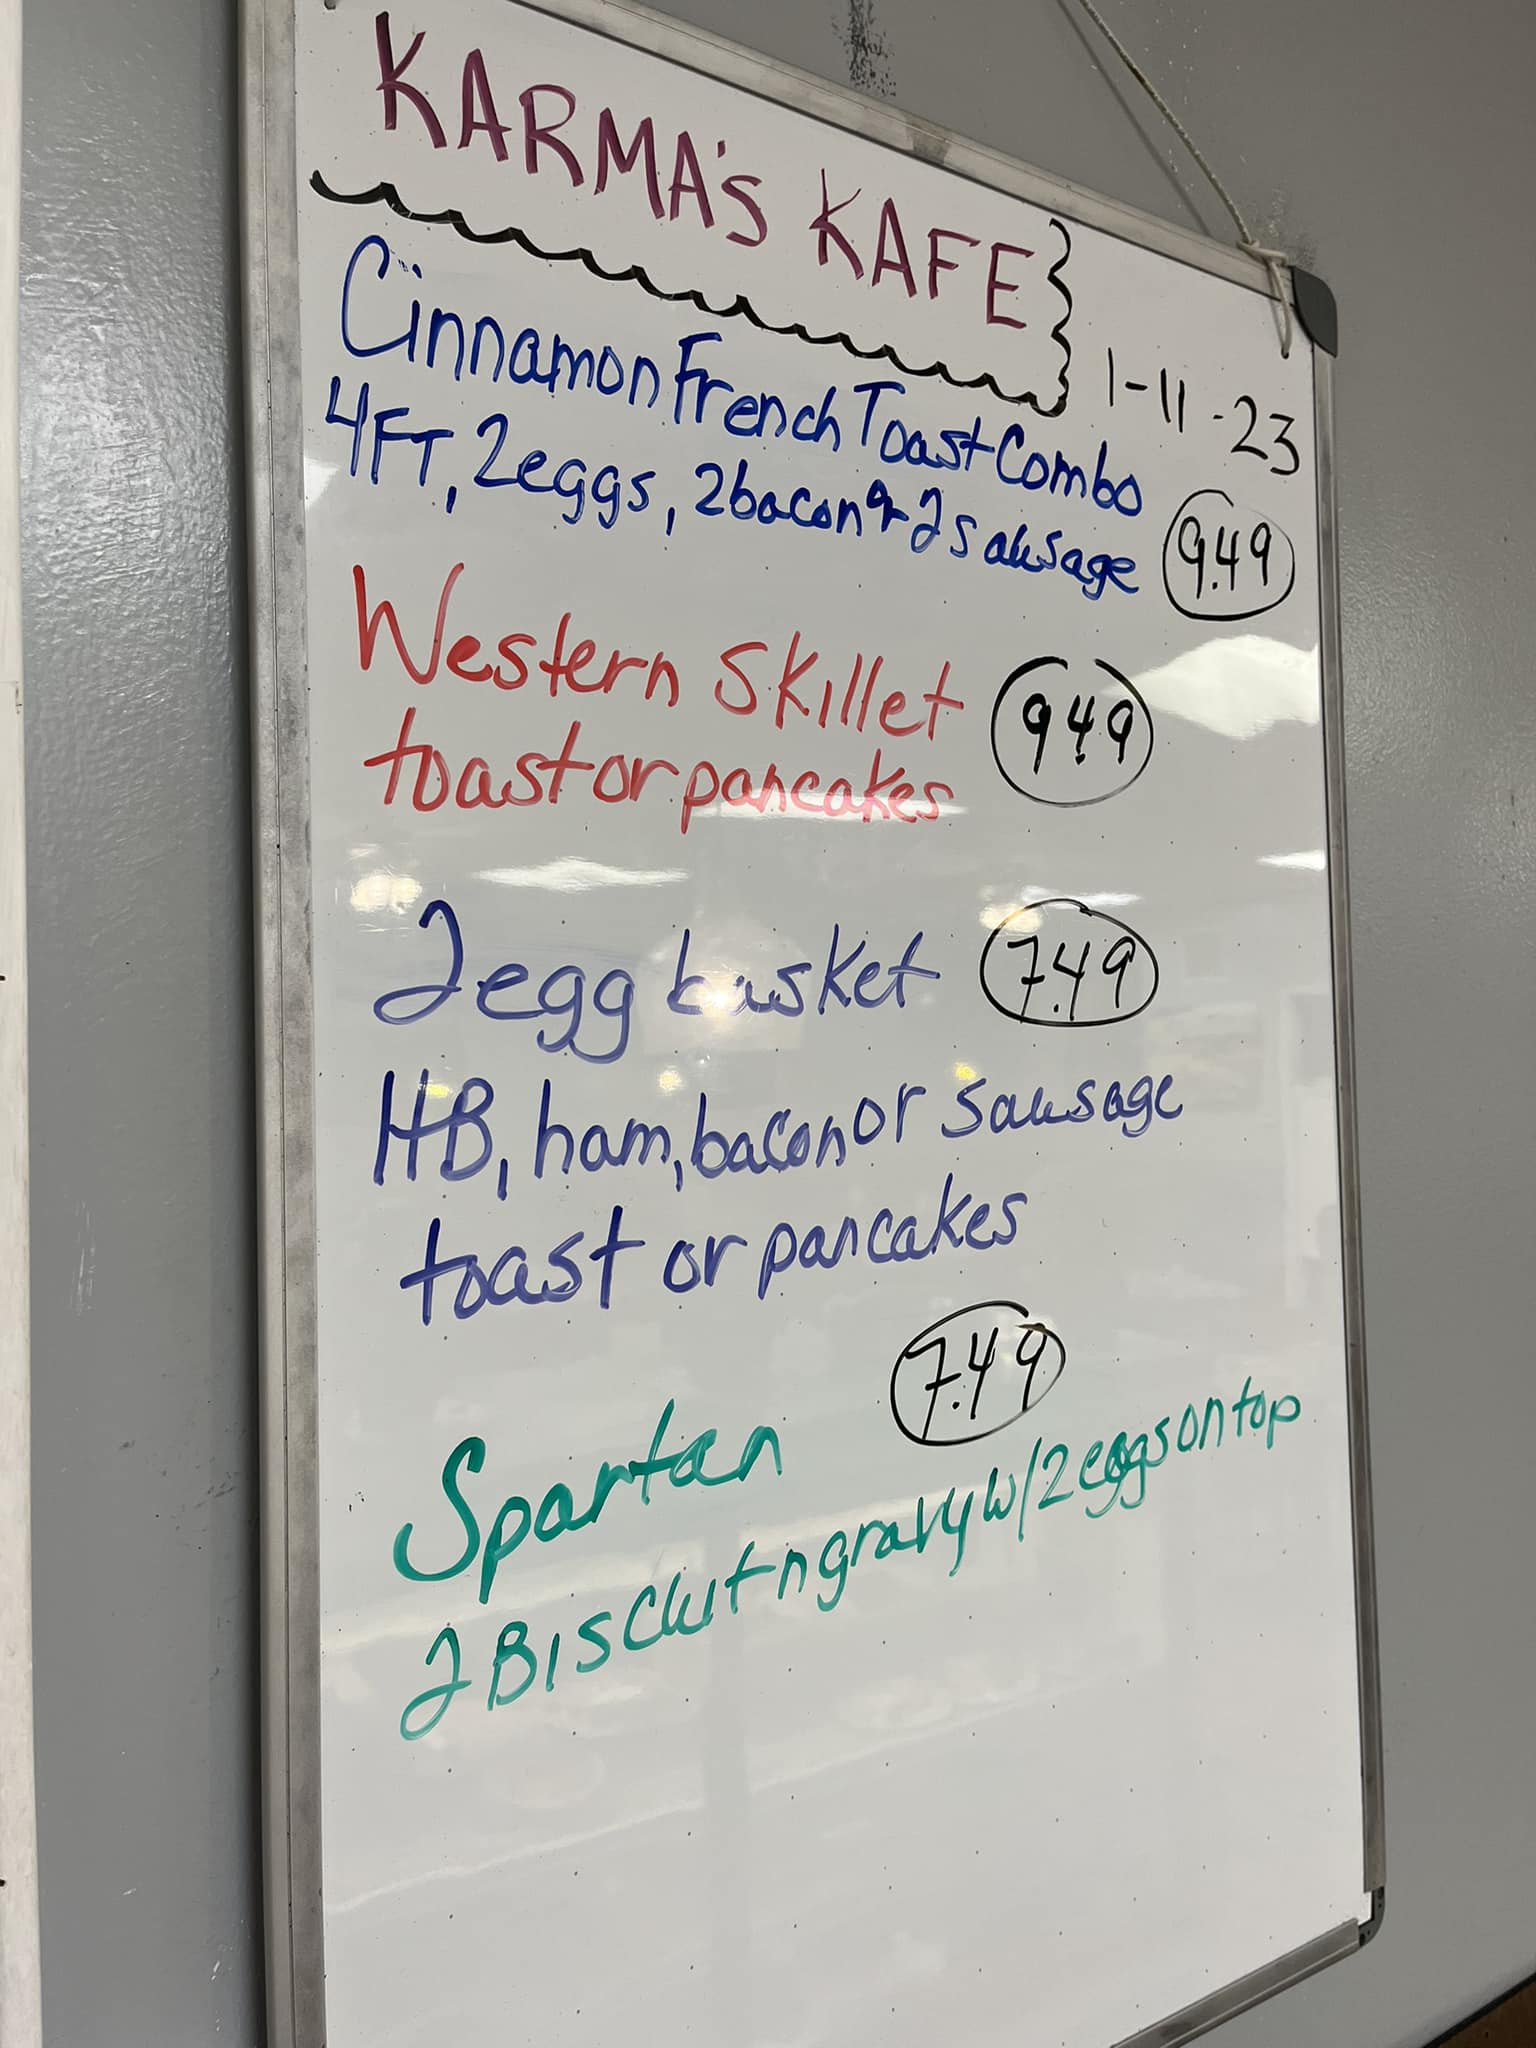 KARMA'S KAFE
1-11-23
Cinnamon French Toast Combo
4FT, 2eggs, 2bacon or 2sausage 9.49
Western Skillet 9.49
toast or pancakes
2egg basket 7.49
HB, ham, bacon or sausage
toast or pancakes
Spartan 7.49
2 Biscuit n gravy w/2eggs on top